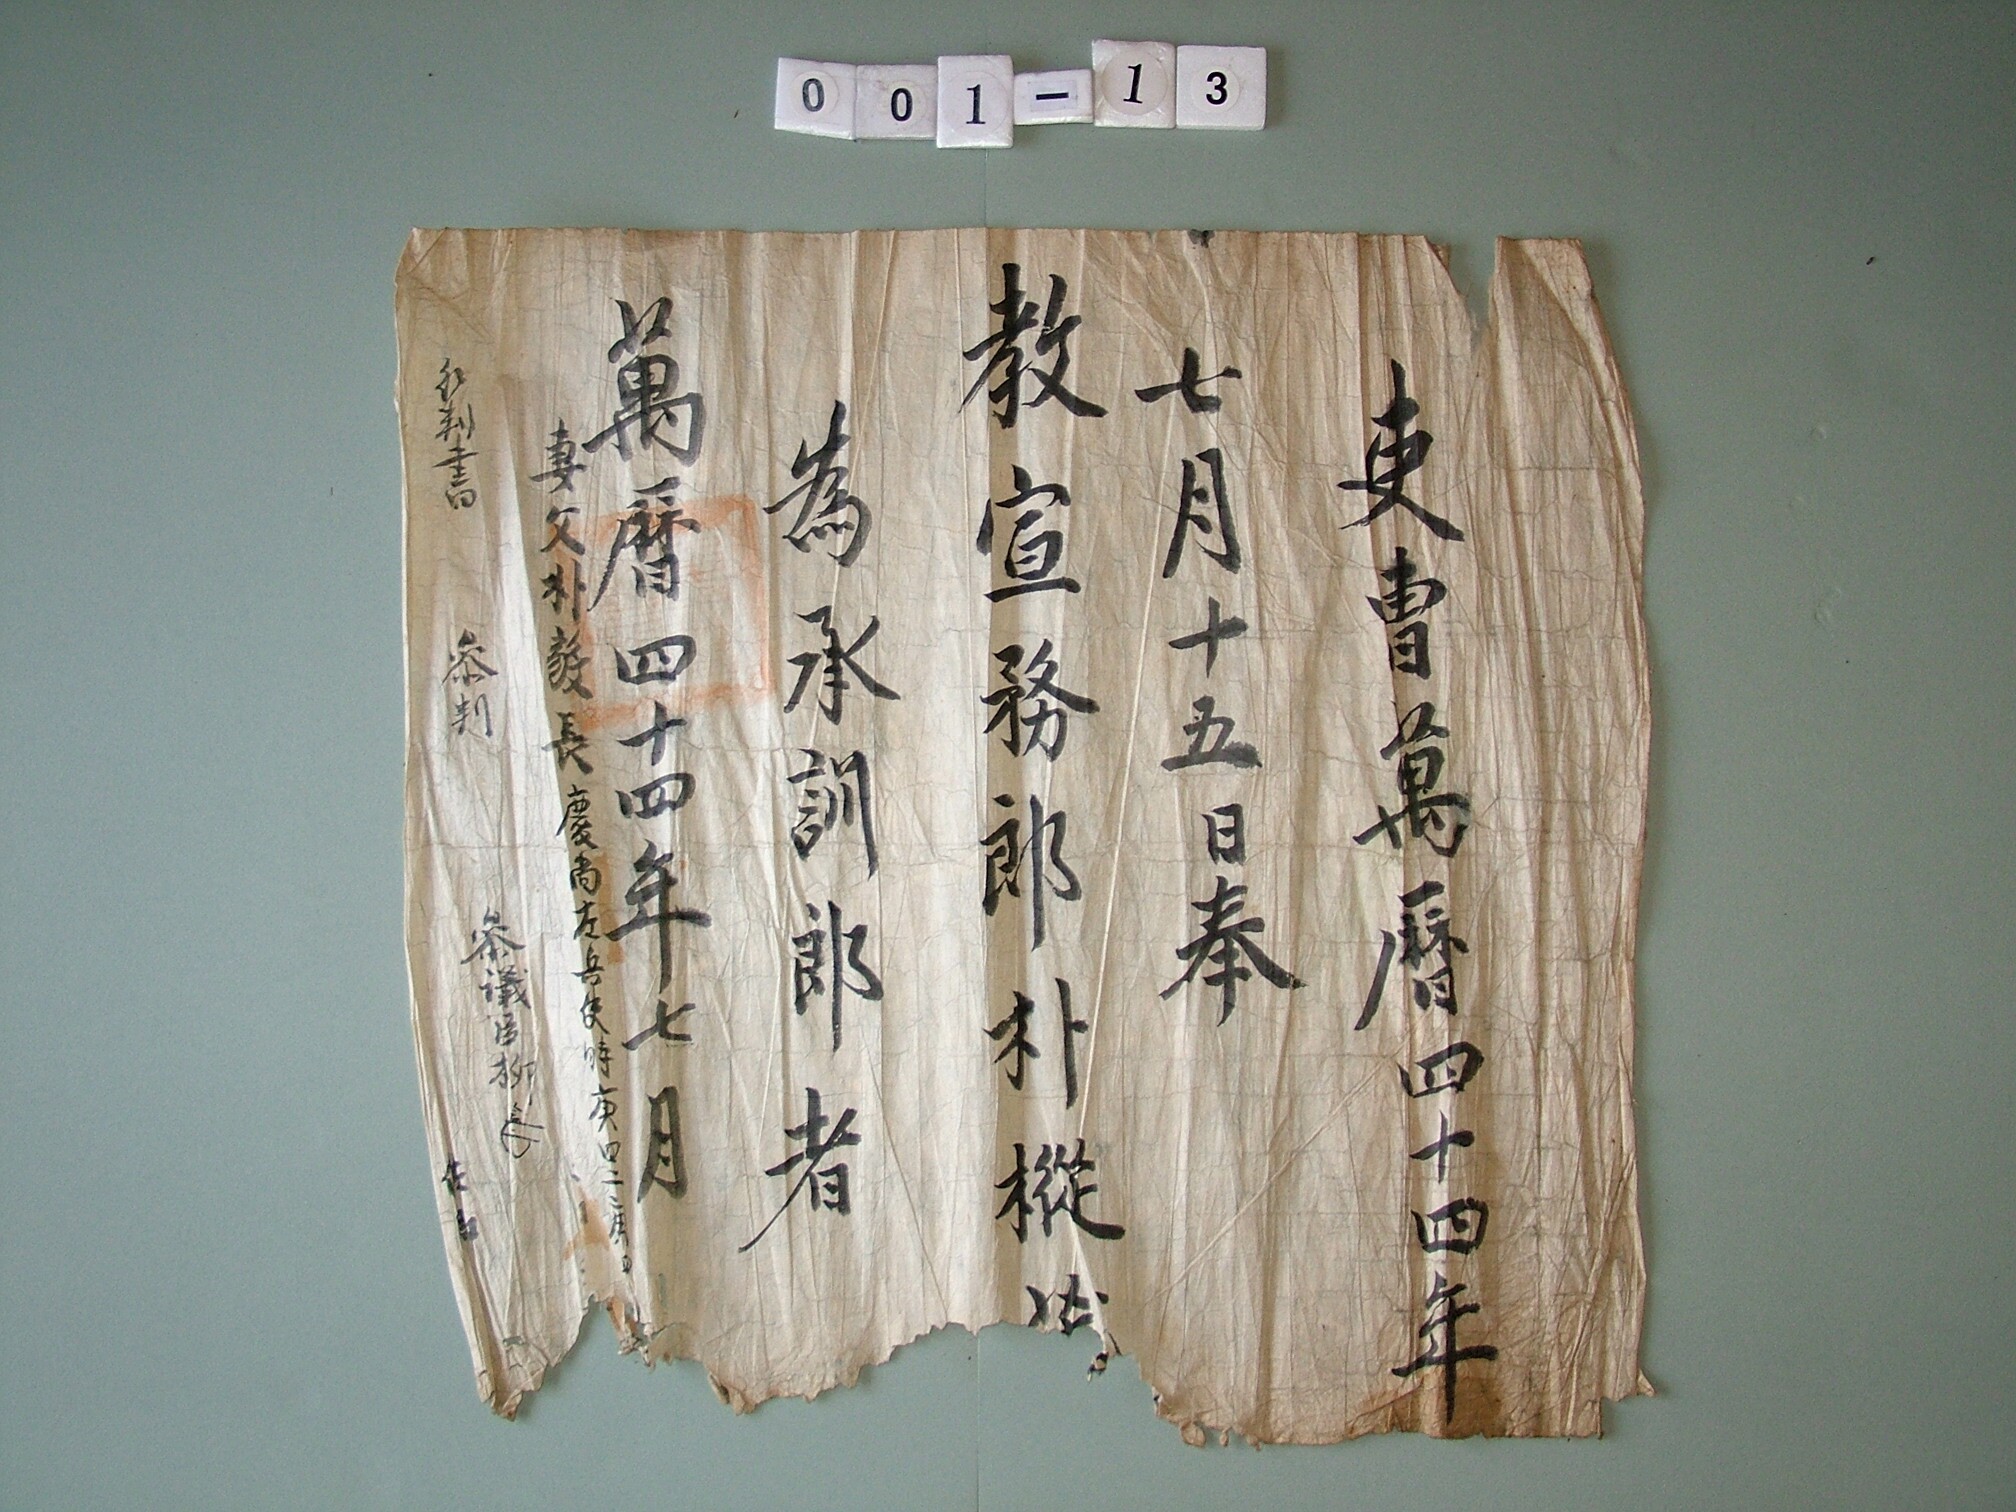 001-13
吏曹萬曆四十四年
七月十五日奉
教宣務郎朴樅茂
為承訓郎者
萬曆四十四年七月
妻父朴毅長慶尚左兵使時庚四二三月日
行判書 參判 參議臣柳 佐郎